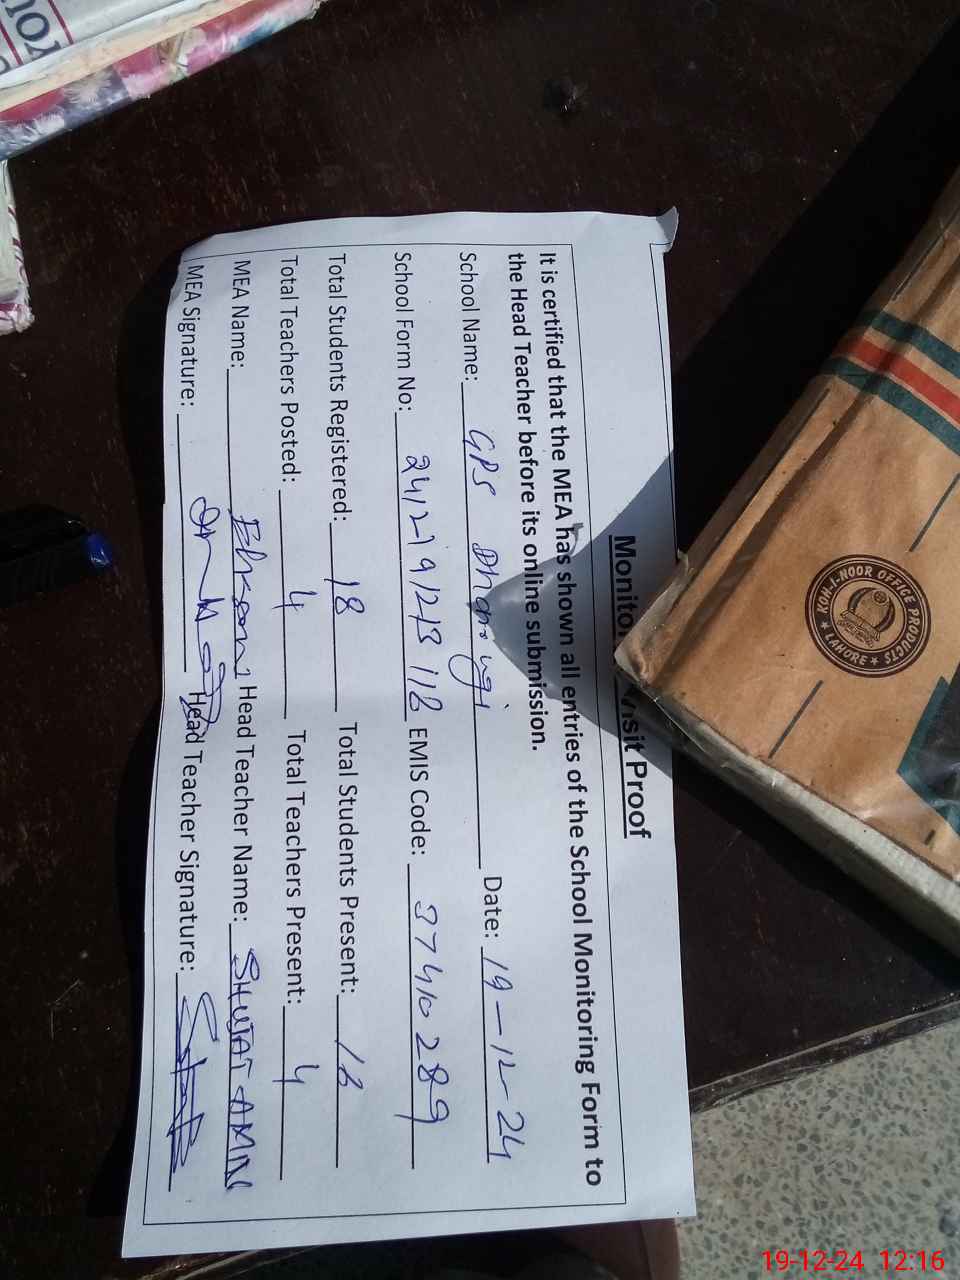 Monitor Visit Proof
It is certified that the MEA has shown all entries of the School Monitoring Form to
the Head Teacher before its online submission.
School Name: GPS Date: 19-12-24
School Form No: EMIS Code: 37410289
Total Students Registered: 18 Total Students Present: 16
Total Teachers Posted: 4 Total Teachers Present: 4
MEA Name: Head Teacher Name: SHUJAT AMIN
MEA Signature: Head Teacher Signature:
KOH-I-NOOR OFFICE PRODUCTS
★ LAHORE ★
19-12-24 12:16